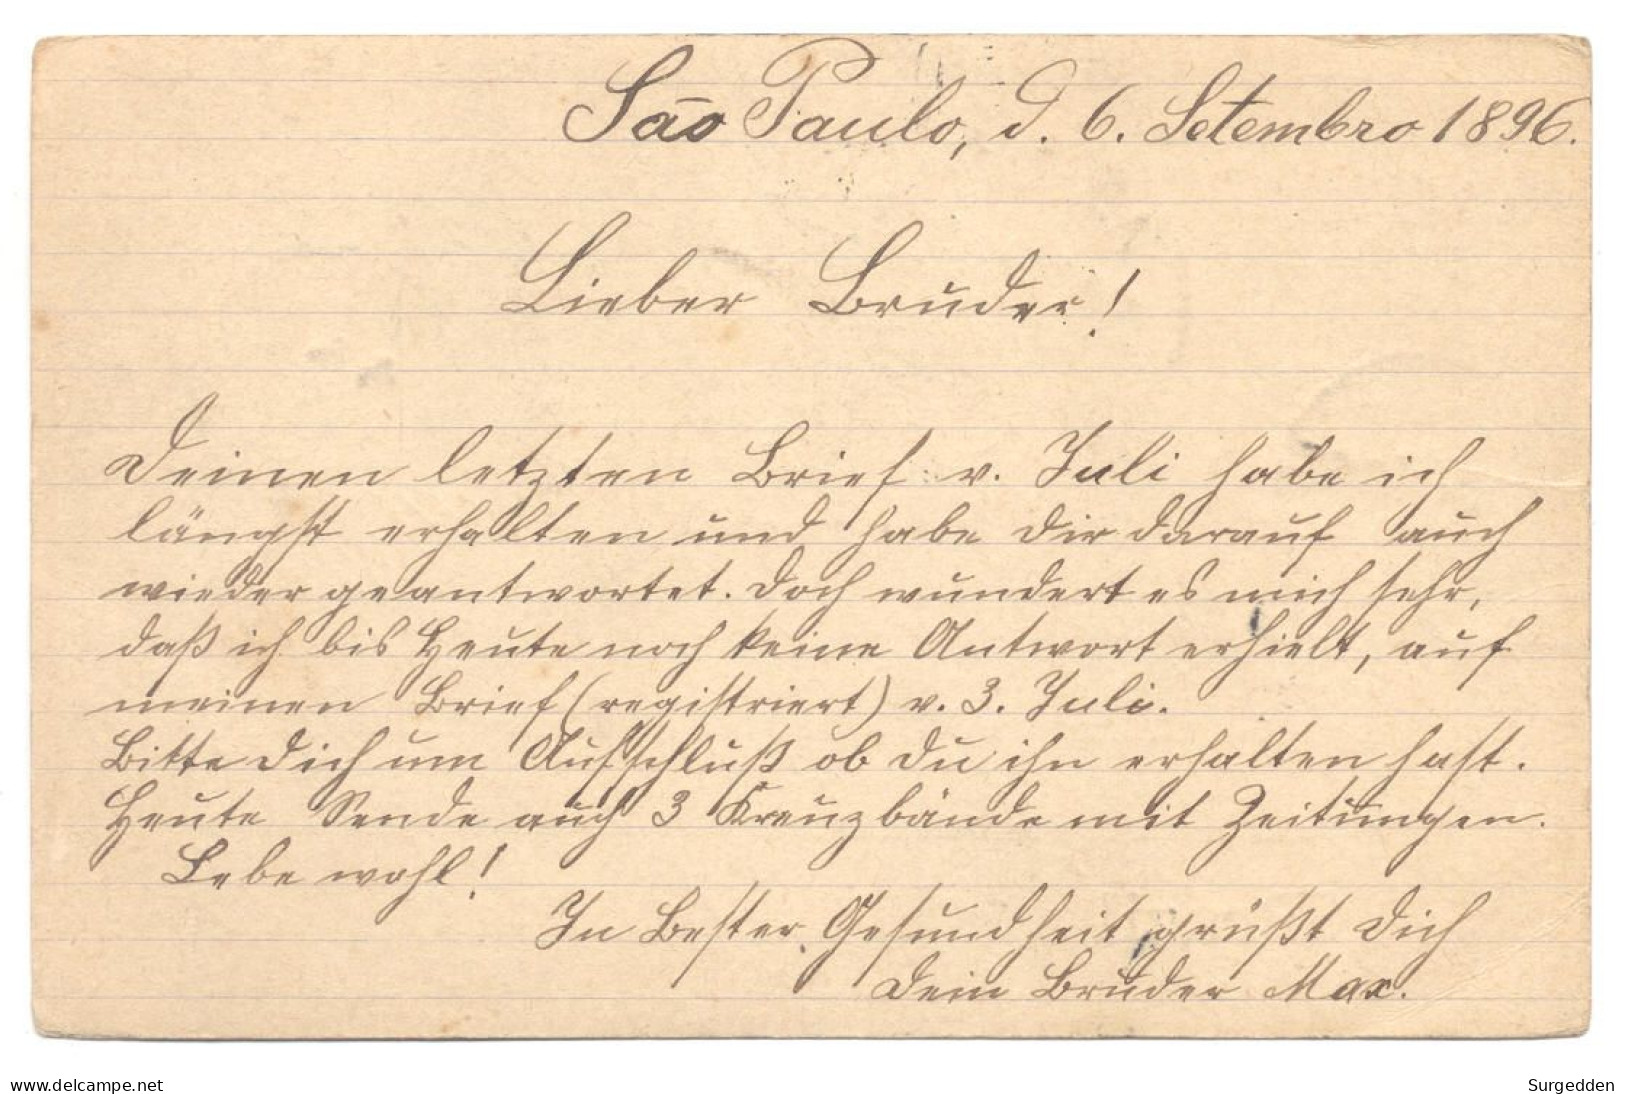 São Paulo, d. 6. Setembro 1896.
Lieber Bruder!
Deinen letzten Brief v. Juli habe ich
längst erhalten und habe Dir darauf auch
wieder geantwortet. Doch wundert es mich sehr,
daß ich bis Heute noch keine Antwort erhielt, auf
meinen Brief (registriert) v. 3. Juli.
Bitte Dich um Aufschluß ob Du ihn erhalten hast.
Heute Sende auch 3 Kreuzbände mit Zeitungen.
Lebe wohl!
In Bester Gesundheit grüßt Dich
Dein Bruder Max.
www.delcampe.net
Surgedden